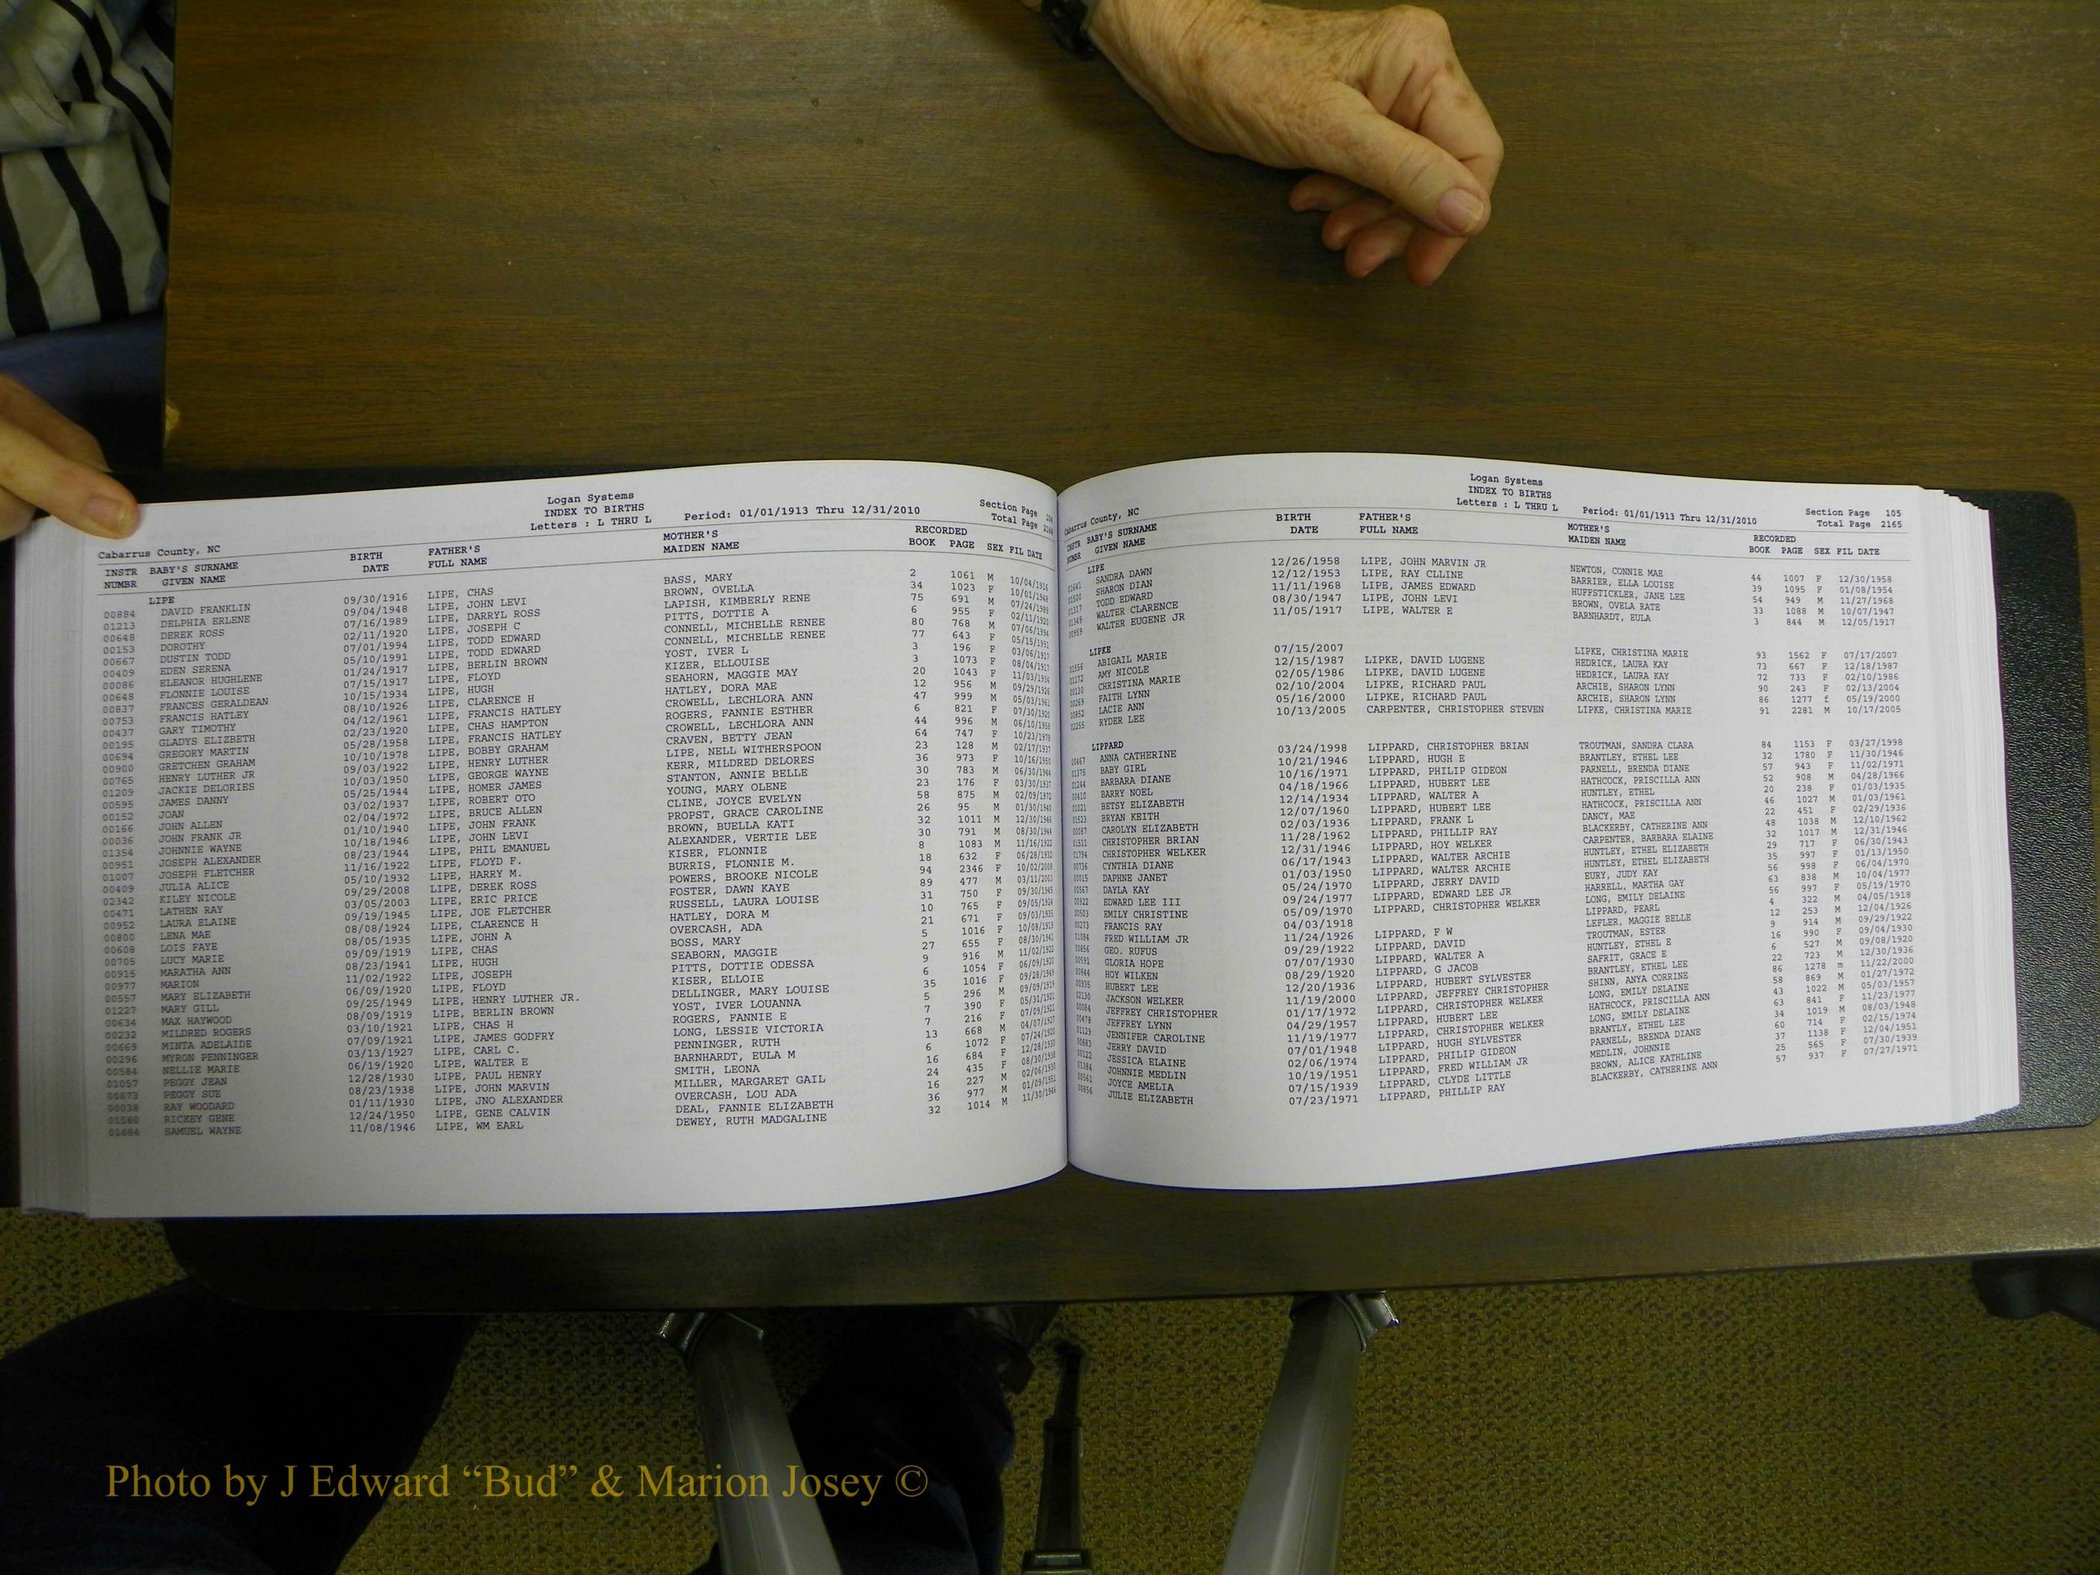 Logan Systems
INDEX TO BIRTHS
Letters : L THRU L Period: 01/01/1913 Thru 12/31/2010
Section Page
Total Page
Cabarrus County, NC
INSTR BABY'S SURNAME BIRTH FATHER'S MOTHER'S RECORDED
NUMBR GIVEN NAME DATE FULL NAME MAIDEN NAME BOOK PAGE SEX FIL DATE
LIPE
00884 DAVID FRANKLIN 09/30/1916 LIPE, CHAS BASS, MARY 2 1061 M 10/04/1916
01213 DELPHIA ERLENE 09/04/1948 LIPE, JOHN LEVI BROWN, OVELLA 34 1023 F 10/01/1948
00648 DEREK ROSS 07/16/1989 LIPE, DARRYL ROSS LAPISH, KIMBERLY RENE 75 691 M 07/24/1989
00153 DOROTHY 02/11/1920 LIPE, JOSEPH C PITTS, DOTTIE A 6 955 F 02/11/1920
00667 DUSTIN TODD 07/01/1994 LIPE, TODD EDWARD CONNELL, MICHELLE RENEE 80 768 M 07/06/1994
00409 EDEN SERENA 05/10/1991 LIPE, TODD EDWARD CONNELL, MICHELLE RENEE 77 643 F 05/15/1991
00086 ELEANOR HUGHLENE 01/24/1917 LIPE, BERLIN BROWN YOST, IVER L 3 196 F 03/06/1917
00648 FLONNIE LOUISE 07/15/1917 LIPE, FLOYD KIZER, ELLOUISE 3 1073 F 08/04/1917
00837 FRANCES GERALDEAN 10/15/1934 LIPE, HUGH SEAHORN, MAGGIE MAY 20 1043 F 11/03/1934
00753 FRANCIS HATLEY 08/10/1926 LIPE, CLARENCE H HATLEY, DORA MAE 12 956 M 09/29/1926
00437 GARY TIMOTHY 04/12/1961 LIPE, FRANCIS HATLEY CROWELL, LECHLORA ANN 47 999 M 05/03/1961
00195 GLADYS ELIZBETH 02/23/1920 LIPE, CHAS HAMPTON ROGERS, FANNIE ESTHER 6 821 F 07/30/1920
00694 GREGORY MARTIN 05/28/1958 LIPE, FRANCIS HATLEY CROWELL, LECHLORA ANN 44 996 M 06/10/1958
00900 GRETCHEN GRAHAM 10/10/1978 LIPE, BOBBY GRAHAM CRAVEN, BETTY JEAN 64 747 F 10/23/1978
00765 HENRY LUTHER JR 09/03/1922 LIPE, HENRY LUTHER LIPE, NELL WITHERSPOON 23 128 M 02/17/1937
01209 JACKIE DELORIES 10/03/1950 LIPE, GEORGE WAYNE KERR, MILDRED DELORES 36 973 F 10/16/1950
00595 JAMES DANNY 05/25/1944 LIPE, HOMER JAMES STANTON, ANNIE BELLE 30 783 M 06/30/1944
00152 JOAN 03/02/1937 LIPE, ROBERT OTO YOUNG, MARY OLENE 23 176 F 03/30/1937
00166 JOHN ALLEN 02/04/1972 LIPE, BRUCE ALLEN CLINE, JOYCE EVELYN 58 875 M 02/09/1972
00036 JOHN FRANK JR 01/10/1940 LIPE, JOHN FRANK PROPST, GRACE CAROLINE 26 95 M 01/30/1940
01354 JOHNNIE WAYNE 10/18/1946 LIPE, JOHN LEVI BROWN, BUELLA KATI 32 1011 M 12/30/1946
00951 JOSEPH ALEXANDER 08/23/1944 LIPE, PHIL EMANUEL ALEXANDER, VERTIE LEE 30 791 M 08/30/1944
01007 JOSEPH FLETCHER 11/16/1922 LIPE, FLOYD F. KISER, FLONNIE 8 1083 M 11/16/1922
00409 JULIA ALICE 05/10/1932 LIPE, HARRY M. BURRIS, FLONNIE M. 18 632 F 06/28/1932
02342 KILEY NICOLE 09/29/2008 LIPE, DEREK ROSS POWERS, BROOKE NICOLE 94 2346 F 10/02/2008
00471 LATHEN RAY 03/05/2003 LIPE, ERIC PRICE FOSTER, DAWN KAYE 89 477 M 03/11/2003
00952 LAURA ELAINE 09/19/1945 LIPE, JOE FLETCHER RUSSELL, LAURA LOUISE 31 750 F 09/30/1945
00800 LENA MAE 08/08/1924 LIPE, CLARENCE H HATLEY, DORA M 10 765 F 09/05/1924
00608 LOIS FAYE 08/05/1935 LIPE, JOHN A OVERCASH, ADA 21 671 F 09/03/1935
00705 LUCY MARIE 09/09/1919 LIPE, CHAS BOSS, MARY 5 1016 F 10/08/1919
00915 MARATHA ANN 08/23/1941 LIPE, HUGH SEABORN, MAGGIE 27 655 F 08/30/1941
00977 MARION 11/02/1922 LIPE, JOSEPH PITTS, DOTTIE ODESSA 9 916 M 11/02/1922
00557 MARY ELIZABETH 06/09/1920 LIPE, FLOYD KISER, ELLOIE 6 1054 F 06/09/1920
01227 MARY GILL 09/25/1949 LIPE, HENRY LUTHER JR. DELLINGER, MARY LOUISE 35 1016 F 09/28/1949
00634 MAX HAYWOOD 08/09/1919 LIPE, BERLIN BROWN YOST, IVER LOUANNA 5 296 M 09/09/1919
00232 MILDRED ROGERS 03/10/1921 LIPE, CHAS H ROGERS, FANNIE E 7 390 F 05/31/1921
00669 MINTA ADELAIDE 07/09/1921 LIPE, JAMES GODFRY LONG, LESSIE VICTORIA 7 216 F 07/09/1921
00296 MYRON PENNINGER 03/13/1927 LIPE, CARL C. PENNINGER, RUTH 13 668 M 04/07/1927
00584 NELLIE MARIE 06/19/1920 LIPE, WALTER E BARNHARDT, EULA M 6 1072 F 07/24/1920
01057 PEGGY JEAN 12/28/1930 LIPE, PAUL HENRY SMITH, LEONA 16 684 F 12/28/1930
00673 PEGGY SUE 08/23/1938 LIPE, JOHN MARVIN MILLER, MARGARET GAIL 24 435 F 08/30/1938
00038 RAY WOODARD 01/11/1930 LIPE, JNO ALEXANDER OVERCASH, LOU ADA 16 227 M 02/06/1930
01580 RICKEY GENE 12/24/1950 LIPE, GENE CALVIN DEAL, FANNIE ELIZABETH 36 977 M 01/09/1951
01484 SAMUEL WAYNE 11/08/1946 LIPE, WM EARL DEWEY, RUTH MADGALINE 32 1014 M 11/30/1946
Logan Systems
INDEX TO BIRTHS
Letters : L THRU L Period: 01/01/1913 Thru 12/31/2010
Section Page 105
Total Page 2165
Cabarrus County, NC
INSTR BABY'S SURNAME BIRTH FATHER'S MOTHER'S RECORDED
NUMBR GIVEN NAME DATE FULL NAME MAIDEN NAME BOOK PAGE SEX FIL DATE
LIPE
01641 SANDRA DAWN 12/26/1958 LIPE, JOHN MARVIN JR NEWTON, CONNIE MAE 44 1007 F 12/30/1958
01500 SHARON DIAN 12/12/1953 LIPE, RAY CLLINE BARRIER, ELLA LOUISE 39 1095 F 01/08/1954
01317 TODD EDWARD 11/11/1968 LIPE, JAMES EDWARD HUFFSTICKLER, JANE LEE 54 949 M 11/27/1968
01349 WALTER CLARENCE 08/30/1947 LIPE, JOHN LEVI BROWN, OVELA RATE 33 1088 M 10/07/1947
00959 WALTER EUGENE JR 11/05/1917 LIPE, WALTER E BARNHARDT, EULA 3 844 M 12/05/1917
LIPKE
01556 ABIGAIL MARIE 07/15/2007 LIPKE, CHRISTINA MARIE 93 1562 F 07/17/2007
01172 AMY NICOLE 12/15/1987 LIPKE, DAVID LUGENE HEDRICK, LAURA KAY 73 667 F 12/18/1987
00130 CHRISTINA MARIE 02/05/1986 LIPKE, DAVID LUGENE HEDRICK, LAURA KAY 72 733 F 02/10/1986
00269 FAITH LYNN 02/10/2004 LIPKE, RICHARD PAUL ARCHIE, SHARON LYNN 90 243 F 02/13/2004
00852 LACIE ANN 05/16/2000 LIPKE, RICHARD PAUL ARCHIE, SHARON LYNN 86 1277 f 05/19/2000
02255 RYDER LEE 10/13/2005 CARPENTER, CHRISTOPHER STEVEN LIPKE, CHRISTINA MARIE 91 2281 M 10/17/2005
LIPPARD
00467 ANNA CATHERINE 03/24/1998 LIPPARD, CHRISTOPHER BRIAN TROUTMAN, SANDRA CLARA 84 1153 F 03/27/1998
01375 BABY GIRL 10/21/1946 LIPPARD, HUGH E BRANTLEY, ETHEL LEE 32 1780 F 11/30/1946
01244 BARBARA DIANE 10/16/1971 LIPPARD, PHILIP GIDEON PARNELL, BRENDA DIANE 57 943 F 11/02/1971
00410 BARRY NOEL 04/18/1966 LIPPARD, HUBERT LEE HATHCOCK, PRISCILLA ANN 52 908 M 04/28/1966
01021 BETSY ELIZABETH 12/14/1934 LIPPARD, WALTER A HUNTLEY, ETHEL 20 238 F 01/03/1935
01523 BRYAN KEITH 12/07/1960 LIPPARD, HUBERT LEE HATHCOCK, PRISCILLA ANN 46 1027 M 01/03/1961
00087 CAROLYN ELIZABETH 02/03/1936 LIPPARD, FRANK L DANCY, MAE 22 451 F 02/29/1936
01511 CHRISTOPHER BRIAN 11/28/1962 LIPPARD, PHILLIP RAY BLACKERBY, CATHERINE ANN 48 1038 M 12/10/1962
01794 CHRISTOPHER WELKER 12/31/1946 LIPPARD, HOY WELKER CARPENTER, BARBARA ELAINE 32 1017 M 12/31/1946
00736 CYNTHIA DIANE 06/17/1943 LIPPARD, WALTER ARCHIE HUNTLEY, ETHEL ELIZABETH 29 717 F 06/30/1943
00015 DAPHNE JANET 01/03/1950 LIPPARD, WALTER ARCHIE HUNTLEY, ETHEL ELIZABETH 35 997 F 01/13/1950
00567 DAYLA KAY 05/24/1970 LIPPARD, JERRY DAVID EURY, JUDY KAY 56 998 F 06/04/1970
00922 EDWARD LEE III 09/24/1977 LIPPARD, EDWARD LEE JR HARRELL, MARTHA GAY 63 838 M 10/04/1977
00503 EMILY CHRISTINE 05/09/1970 LIPPARD, CHRISTOPHER WELKER LONG, EMILY DELAINE 56 997 F 05/19/1970
00273 FRANCIS RAY 04/03/1918 LIPPARD, PEARL 4 322 M 04/05/1918
01084 FRED WILLIAM JR 11/24/1926 LIPPARD, F W LEFLER, MAGGIE BELLE 12 253 M 12/04/1926
00856 GEO. RUFUS 09/29/1922 LIPPARD, DAVID TROUTMAN, ESTER 9 914 M 09/29/1922
00591 GLORIA HOPE 07/07/1930 LIPPARD, WALTER A HUNTLEY, ETHEL E 16 990 F 09/04/1930
00844 HOY WILKEN 08/29/1920 LIPPARD, G JACOB SAFRIT, GRACE E 6 527 M 09/08/1920
00935 HUBERT LEE 12/20/1936 LIPPARD, HUBERT SYLVESTER BRANTLEY, ETHEL LEE 22 723 M 12/30/1936
02130 JACKSON WELKER 11/19/2000 LIPPARD, JEFFREY CHRISTOPHER SHINN, ANYA CORRINE 86 1278 m 11/22/2000
00084 JEFFREY CHRISTOPHER 01/17/1972 LIPPARD, CHRISTOPHER WELKER LONG, EMILY DELAINE 58 869 M 01/27/1972
00478 JEFFREY LYNN 04/29/1957 LIPPARD, HUBERT LEE HATHCOCK, PRISCILLA ANN 43 1022 M 05/03/1957
01129 JENNIFER CAROLINE 11/19/1977 LIPPARD, CHRISTOPHER WELKER LONG, EMILY DELAINE 63 841 F 11/23/1977
00883 JERRY DAVID 07/01/1948 LIPPARD, HUGH SYLVESTER BRANTLY, ETHEL LEE 34 1019 M 08/03/1948
00122 JESSICA ELAINE 02/06/1974 LIPPARD, PHILIP GIDEON PARNELL, BRENDA DIANE 60 714 F 02/15/1974
01384 JOHNNIE MEDLIN 10/19/1951 LIPPARD, FRED WILLIAM JR MEDLIN, JOHNNIE 37 1138 F 12/04/1951
00561 JOYCE AMELIA 07/15/1939 LIPPARD, CLYDE LITTLE BROWN, ALICE KATHLINE 25 565 F 07/30/1939
00856 JULIE ELIZABETH 07/23/1971 LIPPARD, PHILLIP RAY BLACKERBY, CATHERINE ANN 57 937 F 07/27/1971
Photo by J Edward “Bud” & Marion Josey ©